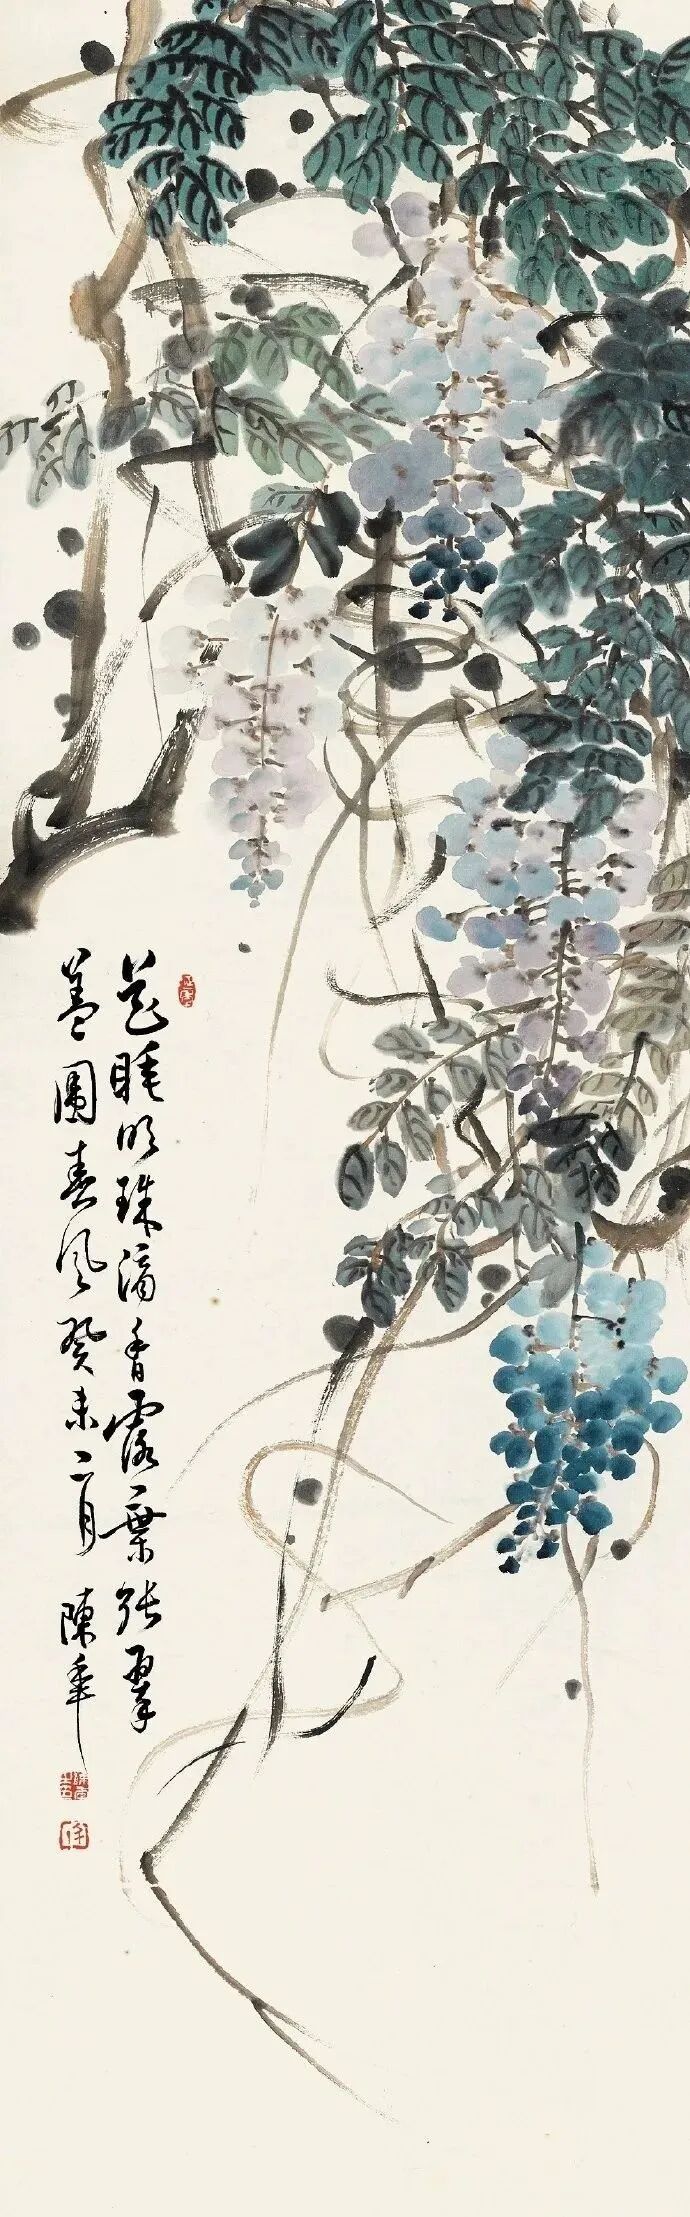 花睡明珠滴香露葉張翠
蓋團春風癸未二月 陳年